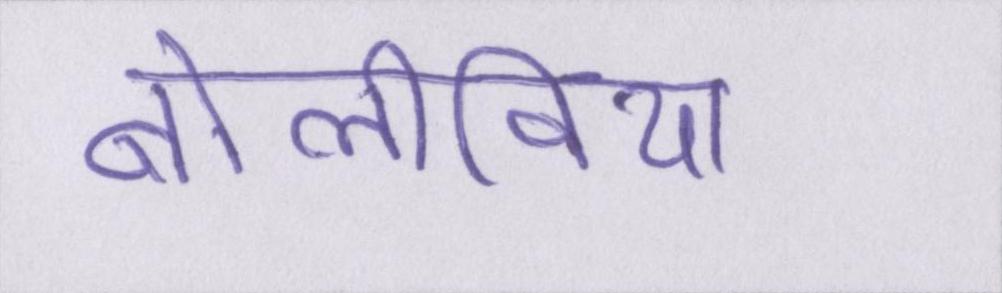 बोलीविया